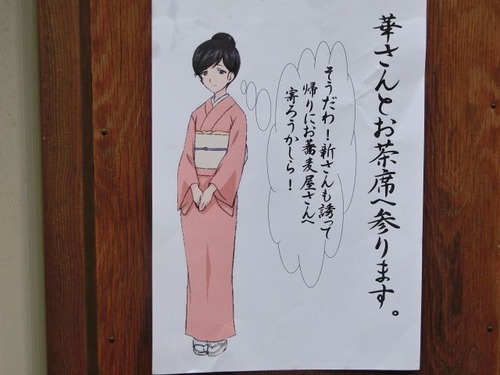 華さんとお茶席へ参ります。
そうだわ！新さんも誘って
帰りにお蕎麦屋さんへ
寄ろうかしら！